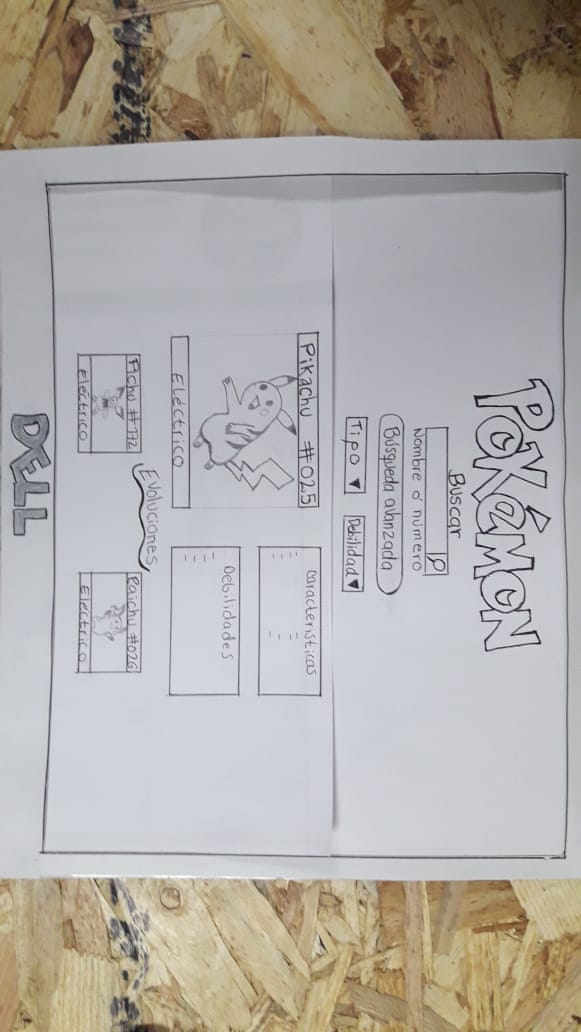 POKéMON
Buscar
Nombre ó número
Búsqueda avanzada
Tipo ▼ Debilidad ▼
Pikachu #025
Eléctrico
Caracteristicas
Debilidades
Evoluciones
Pichu #172
Eléctrico
Raichu #026
Eléctrico
DELL